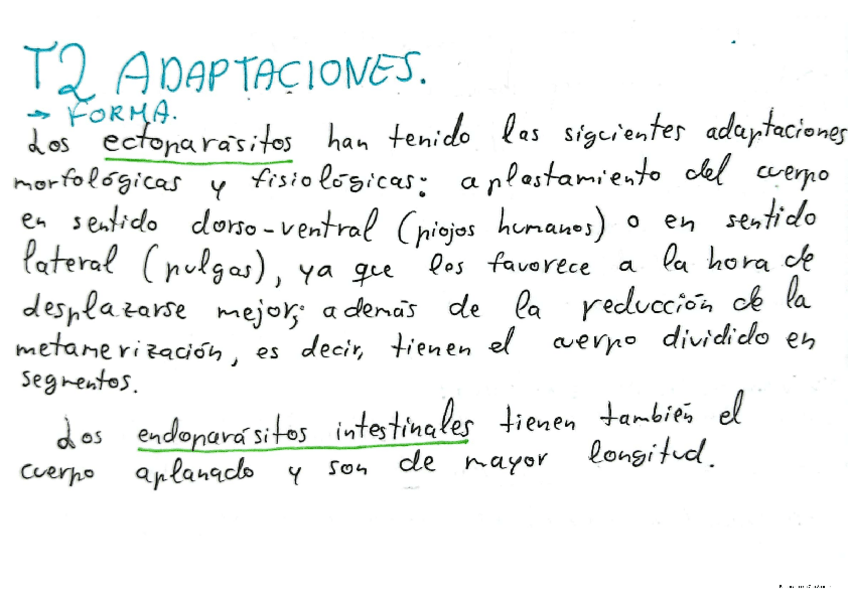 T2 ADAPTACIONES.
→ FORMA.
Los ectoparásitos han tenido las sigcientes adaptaciones
morfológicas y fisiológicas: aplastamiento del cuerpo
en sentido dorso-ventral (piojos humanos) o en sentido
lateral (pulgas), ya que les favorece a la hora de
desplazarse mejor; además de la reducción de la
metamerización, es decir, tienen el cuerpo dividido en
segmentos.
Los endoparásitos intestinales tienen también el
cuerpo aplanado y son de mayor longitud.